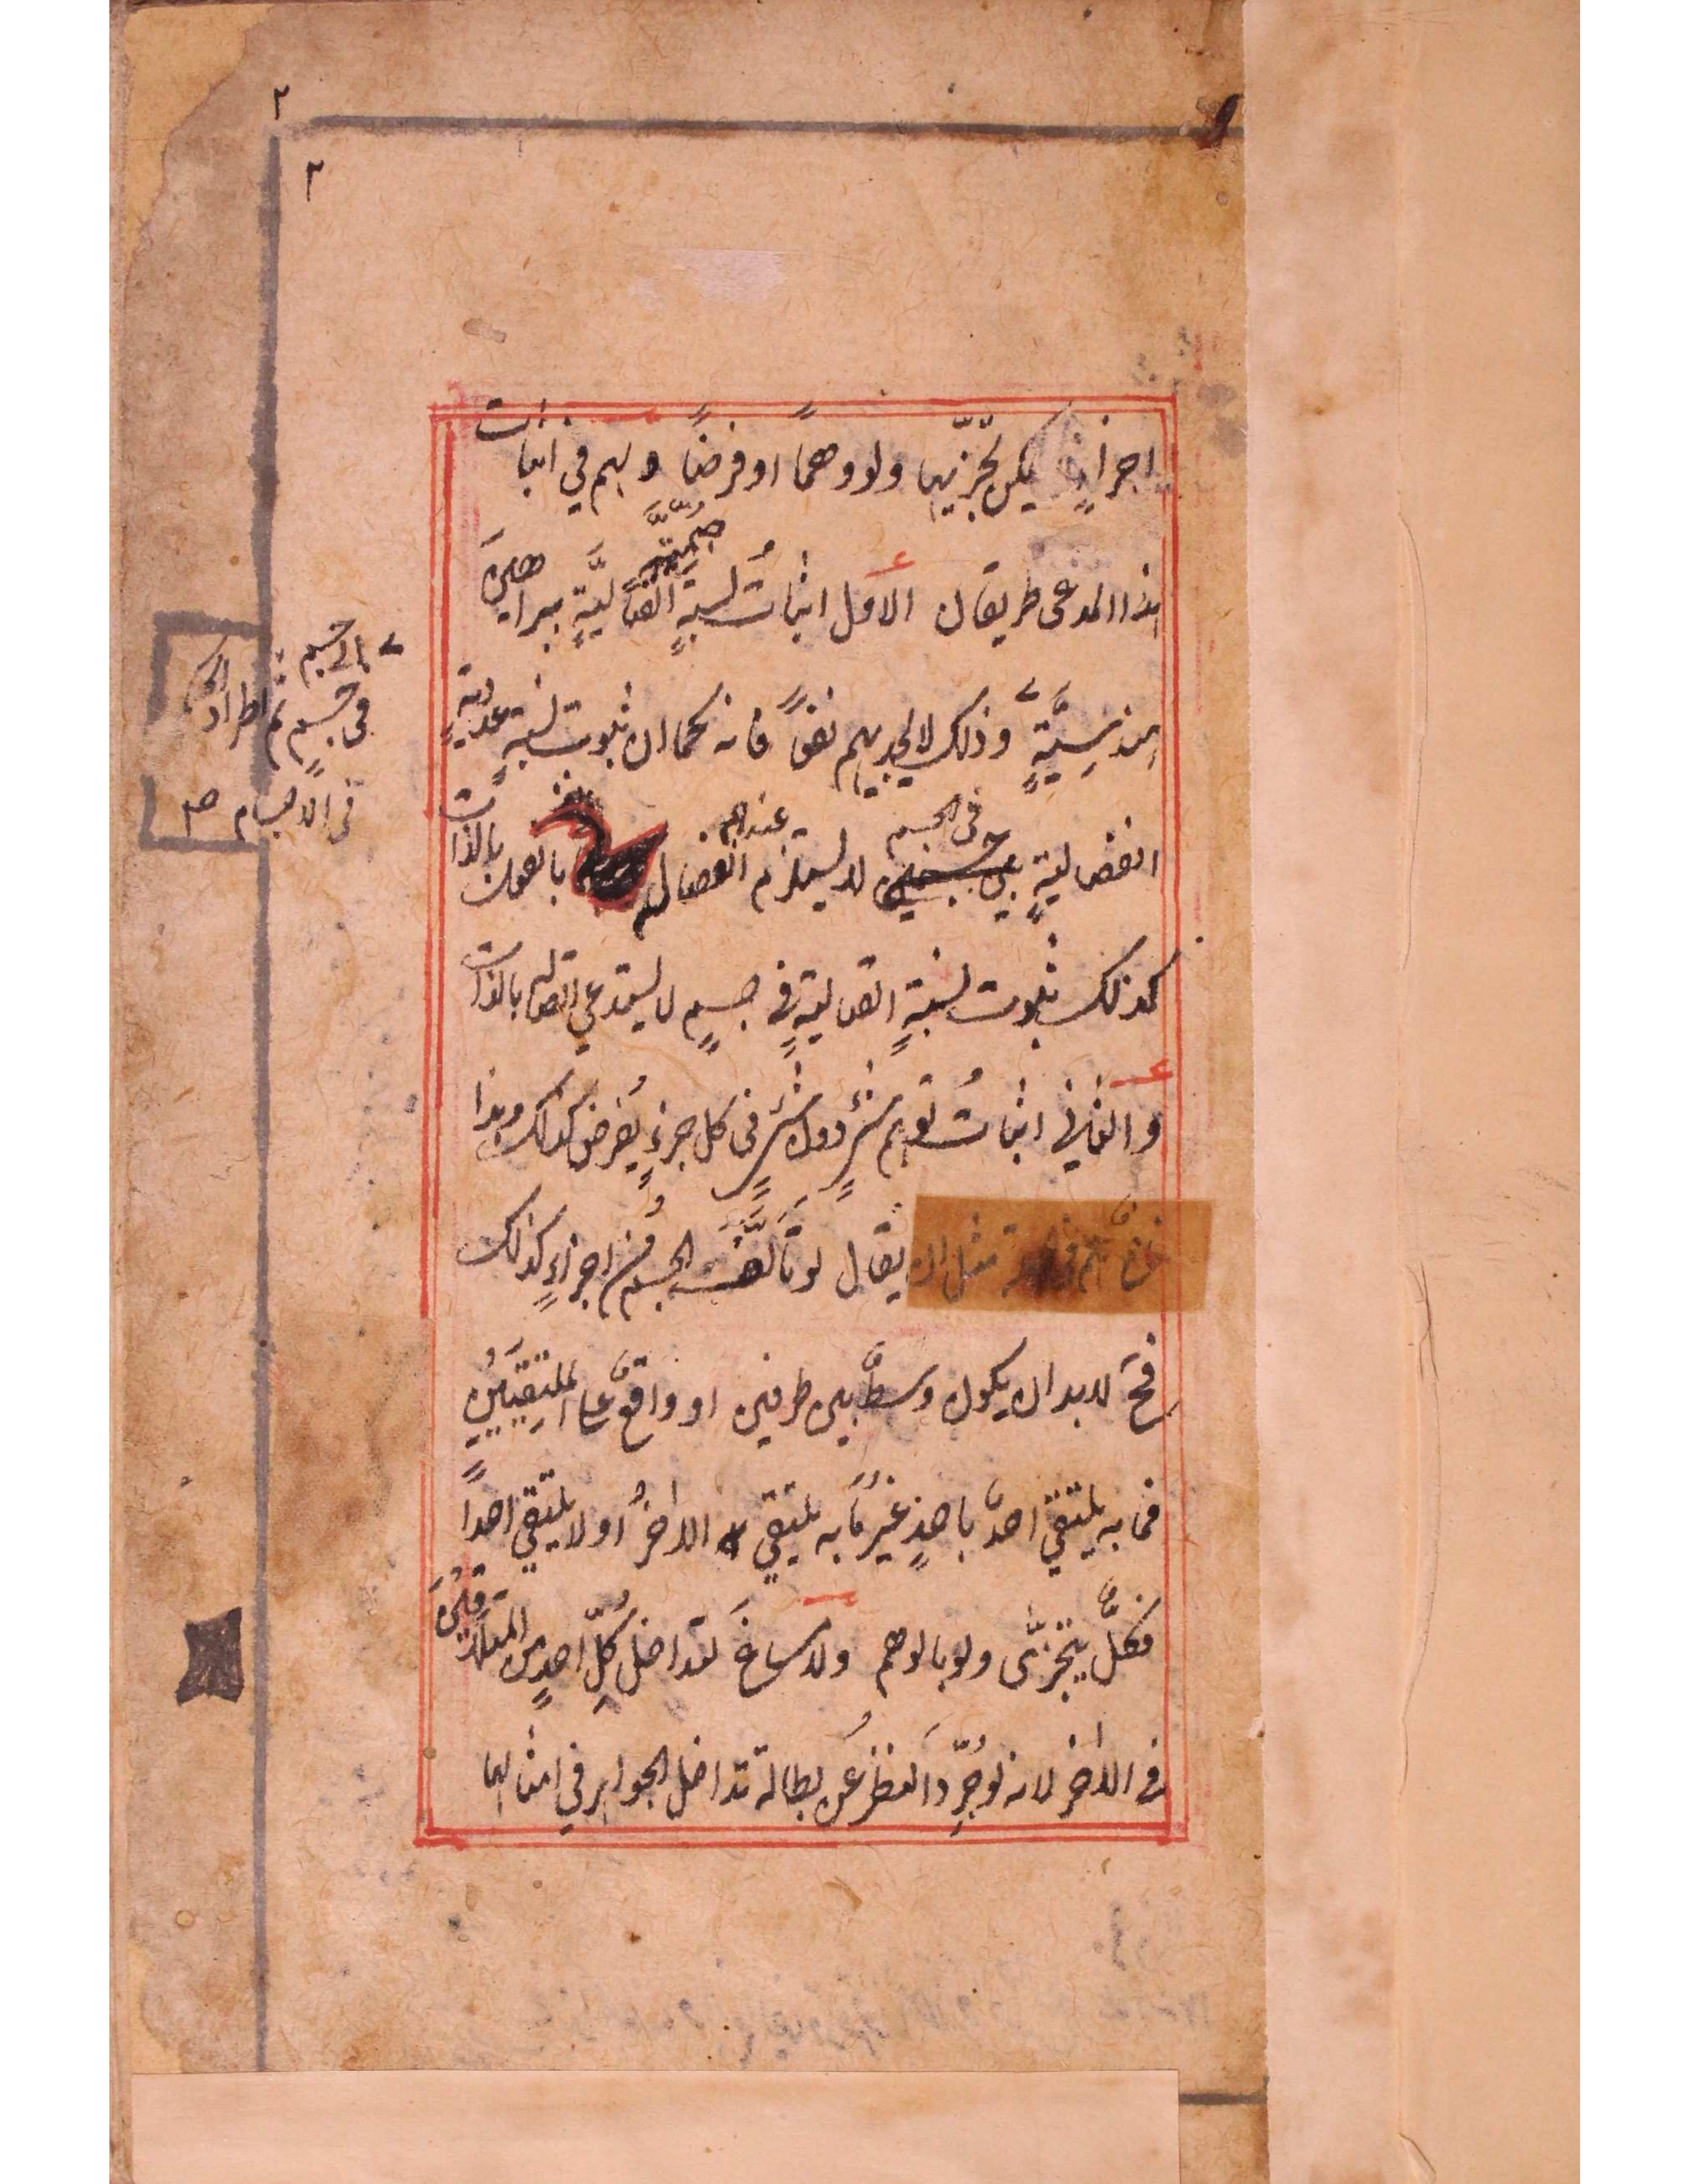 ٢
٢
اجزاءٍ يمكن تجزّيها ولو وهمًا او فرضًا ولهم في اثبات
هذا المدعى طريقان الاول اثباتُ نسبةٍ اتصاليَّةٍ ببراهين
صمّيَّة
هندسيَّةٍ وذلك لا يجديهم نفعًا فانه كما ان ثبوت نسبةٍ عدديةٍ
انفصاليةٍ بين جسمين لا يستلزم انفصاله بالفعل بالذات
في الجسم
عندهم
كذلك ثبوت نسبةٍ اتصاليةٍ في جسمٍ لا يستدعي اتصاله بالذات
والثاني اثباتُ توهم شئٍ دون شئٍ في كل جزءٍ يُفرض كذلك وهذا
مثل ان يقال لو تألَّف الجسمُ من اجزاءٍ كذلك
فح لا بد ان يكون وسطٌ بين طرفين او واقعٌ على الملتقيَين
فما به يلتقي احدٌ باحدٍ غيرُ ما به يلتقي الاٰخرُ او لا يلتقي احدًا
فكلٌّ يتجزّى ولو بالوهم ولا مساغَ لتداخل كلِّ احدٍ من المتلاقيَين
في الاٰخر لانه لو جُرِّدَ النظرُ عن بطالة تداخل الجواهر في امثالها
الى جسم
في جسمٍ ثم اطراد الحكم
في الاجسام صح